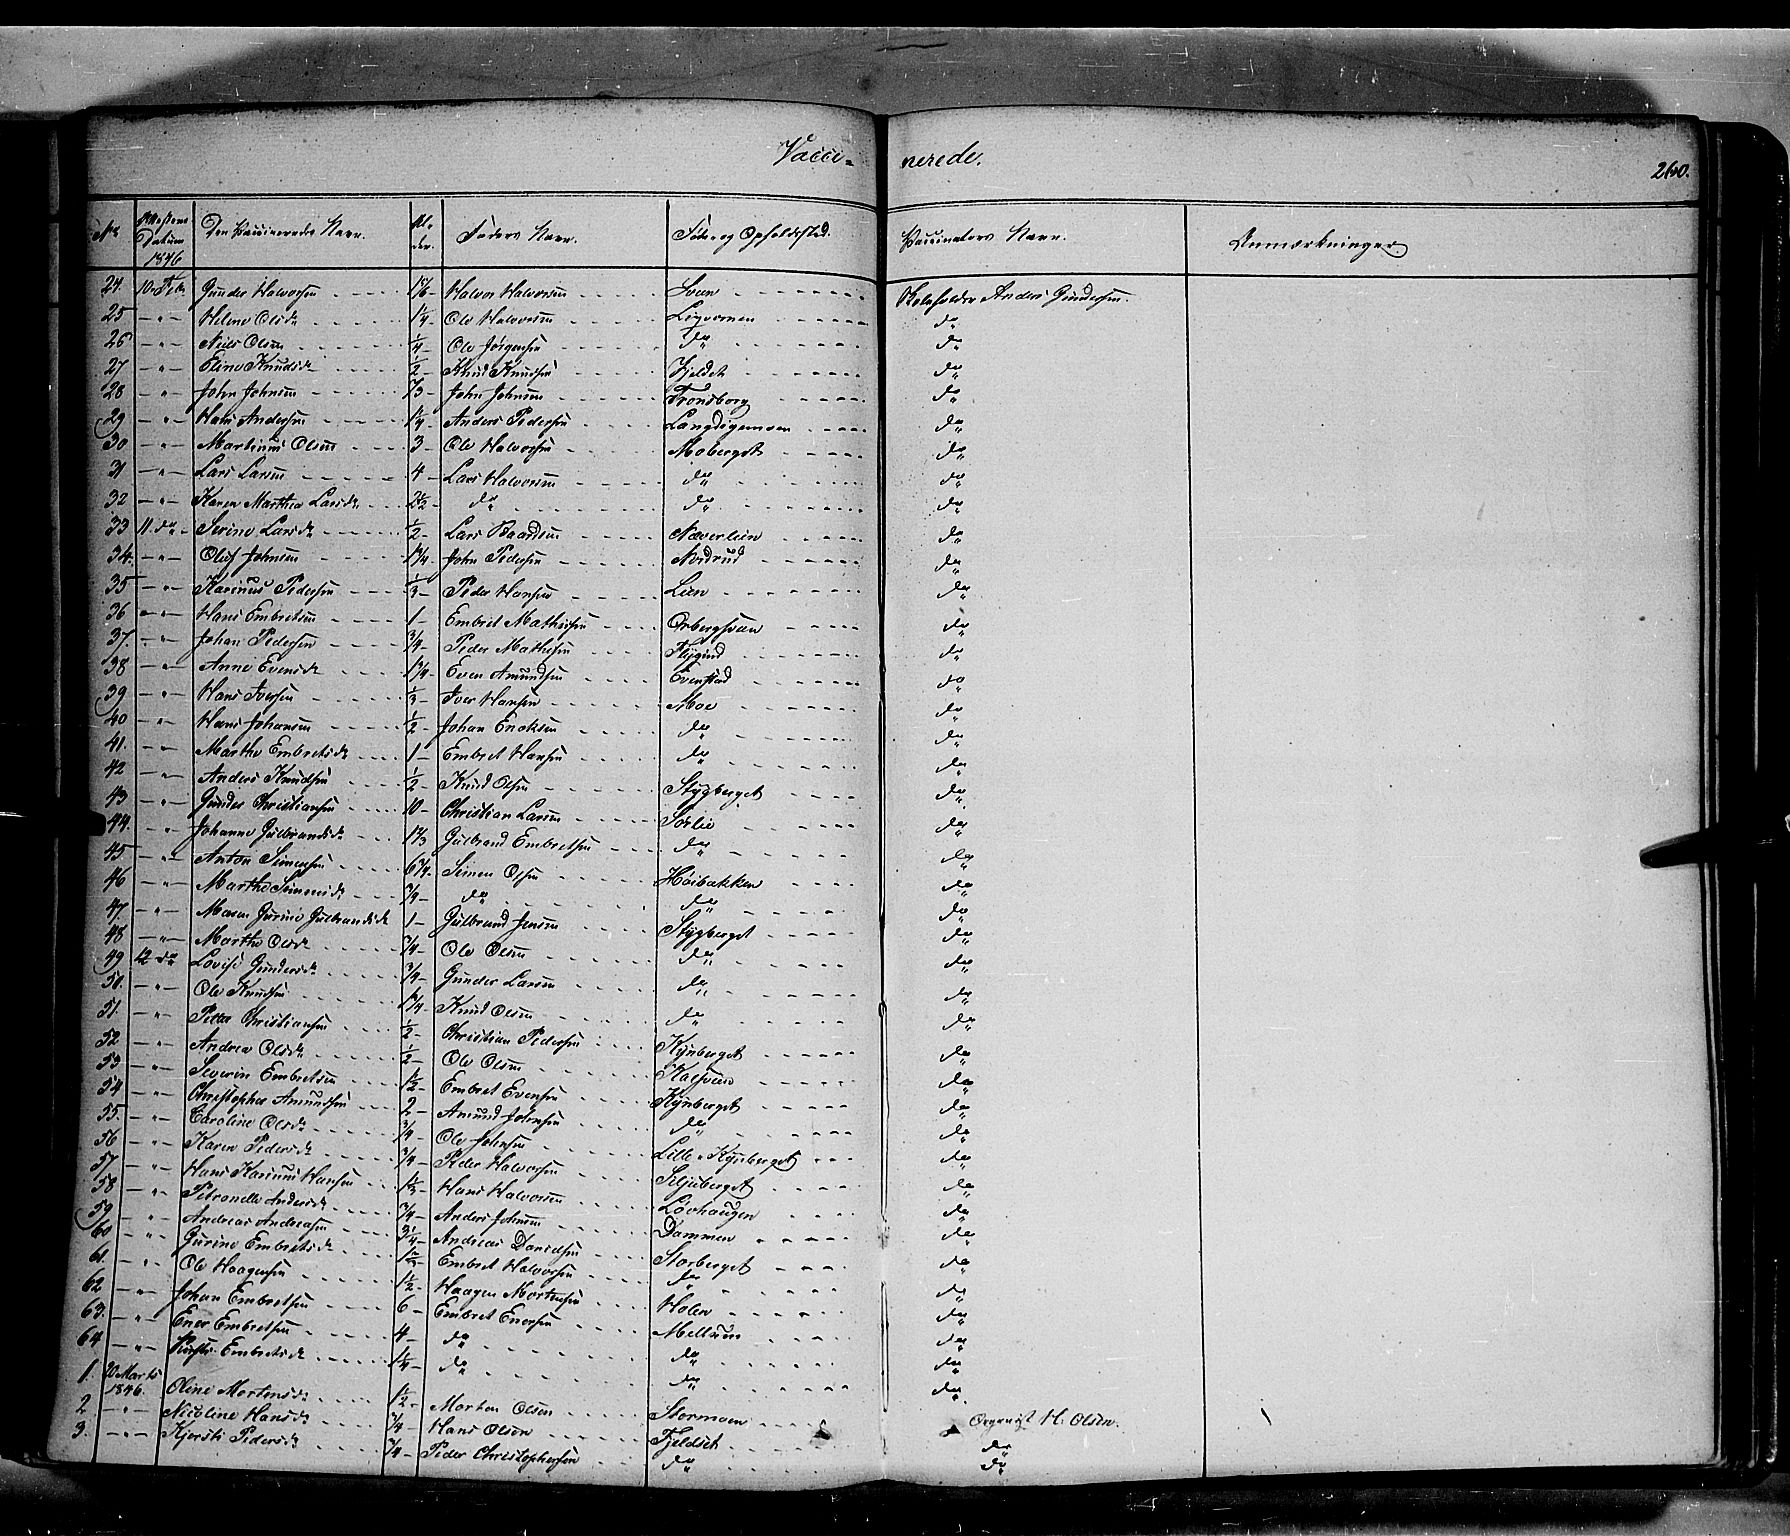 Vacci- nerede. 260.
No Attestens Datum 1846 Den Vaccineredes Navn. Alder. Faders Navn. Føde og Opholdsted. Vaccinators Navn. Anmærkninger
24. 10 Feb Gunder Halvorsen Halvor Halvorsen Sveen Anders Gundersen.
25 - " - Helene Olsdr 1 1/4 Ole Halvorsen do
26 - " - Niels Olsen 1/4 Ole Jørgensen do do
27 - " - Eline Knudsdr 1/2 Knud Knudsen Fjeldet do
28 - " - John Johnsen John Johnsen Tronsborg do
29 - " - Hans Andersen 1 1/4 Anders Pedersen do
30 - " - Martinus Olsen 3 Ole Halvorsen Moberget do
31 - " - Lars Larsen 4 Lars Halvorsen do do
32 - " - Karen Marthea Larsdr 2 1/2 do do do
33 11 do Serine Larsdr 1/2 Lars Baardsen Næverlien do
34. - " - Oluf Johnsen 1 3/4 John Pedersen Nordrud do
35 - " - Karinus Pedersen 1/3 Peder Hansen Lien do
36 - " - Hans Embretsen 1 Embret Mathisen do
37. - " - Johan Pedersen 3/4 Peder Mathisen Flygind do
38 - " - Anne Evensdr 1 3/4 Even Amundsen Evenstad do
39 - " - Hans Iversen 1/3 Iver Hansen Moe do
40 - " - Hans Johansen 1/2 Johan Enoksen do do
41. - " - Marthe Embretsdr 1 Embret Hansen do do
42 - " - Anders Knudsen 1/2 Knud Olsen Stygberget do
43 - " - Gunder Christiansen 10 Christian Larsen Sørlie do
44. - " - Johanne Gulbrandsdr 1 2/3 Gulbrand Embretsen do do
45 - " - Anton Simensen 6 3/4 Simen Olsen Høibakken do
46 - " - Marthe Simensdr 3/4 do do do
47. - " - Maren Gurine Gulbrandsdr 1 Gulbrand Jensen Stygberget do
48 - " - Marthe Olsdr 3/4 Ole Olsen do do
49 12 do Lovise Gundersdr 3/4 Gunder Larsen do do
50. - " - Ole Knudsen 1 3/4 Knud Olsen do do
51. - " - Petter Christiansen 1/2 Christian Pedersen Kynberget do
52 - " - Andrea Olsdr 1/2 Ole Olsen do
53 - " - Severin Embretsen 1 1/2 Embret Evensen Kynberget do
54 - " - Christopher Amundsen 2 Amund Johnsen do do
55 - " - Caroline Olsdr 3/4 Ole Johnsen Lille Kynberget do
56 - " - Karen Pedersdr 3/4 Peder Halvorsen do
57 - " - Hans Karinus Hansen Hans Halvorsen Løvhaugen do
58 - " - Petronelle Andersdr 3/4 Anders Johnsen Dammen do
59 - " - Andreas Andreasen 3 1/4 Andreas Danielsen Storberget do
60 - " - Gurine Embretsdr Embret Halvorsen do do
61. - " - Ole Haagensen 1 1/2 Haagen Mortensen Holen do
62 - " - Johan Embretsen 6 Embret Enersen Mellum do
63. - " - Ener Embretsen 4 do do do
64 - " - Embretsdr 1 1/4 do do do
1. 20 Marts 1846. Oline Mortensdr 1 1/2 Morten Olsen Stormoen Organist H. Olsen.
2 - " - Nicoline Hansdr 3/4 Hans Olsen Fjeldset do
3. - " - Kjersti Pedersdr 3/4 Peder Christophersen do do